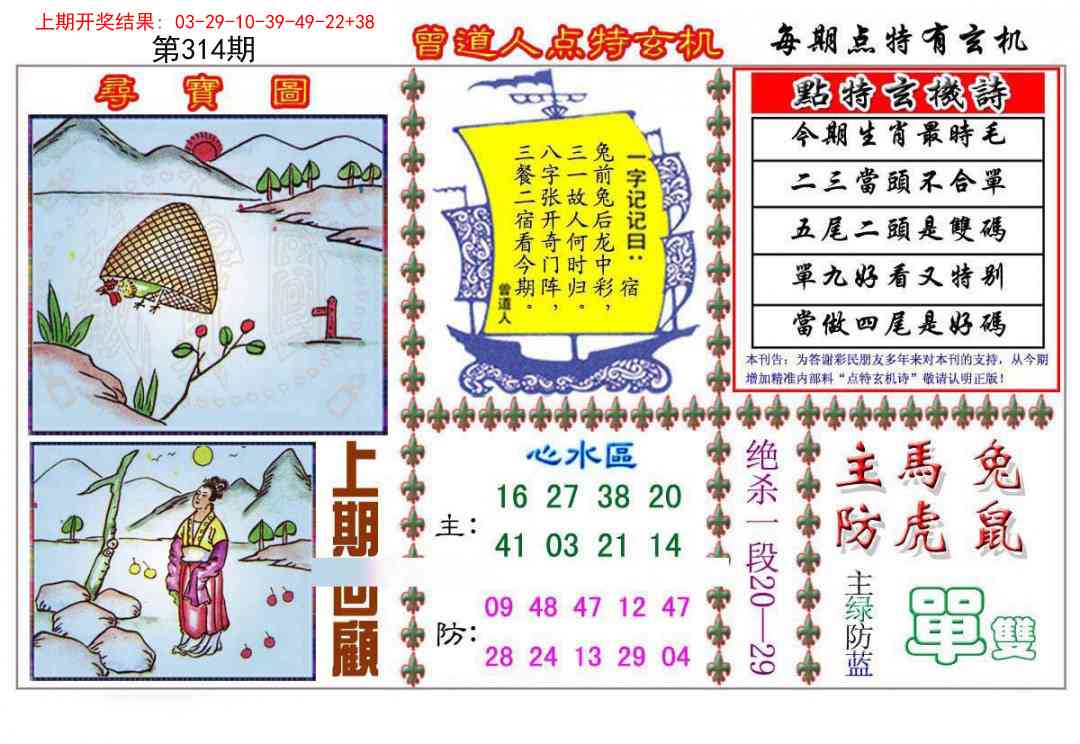 上期开奖结果：03-29-10-39-49-22+38
第314期
曾道人点特玄机
每期点特有玄机
尋寶圖
一字记记曰：宿
兔前兔后龙中彩，
三一故人何时归。
八字张开奇门阵，
三餐二宿看今期。
曾道人
點特玄機詩
今期生肖最時毛
二三當頭不合單
五尾二頭是雙碼
單九好看又特别
當做四尾是好碼
本刊告：为答谢彩民朋友多年来对本刊的支持，从今期
增加精准内部料“点特玄机诗”敬请认明正版！
上期回顧
心水區
主：
16 27 38 20
41 03 21 14
防：
09 48 47 12 47
28 24 13 29 04
绝杀一段20—29
主馬兔
防虎鼠
主绿防蓝
單雙